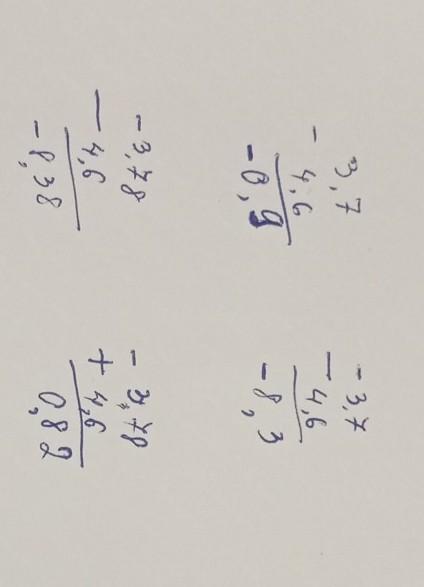 3,7
−
4,6
−0,9
−3,7
−
4,6
−8,3
−3,78
−
4,6
−8,38
−3,78
+
4,6
0,82